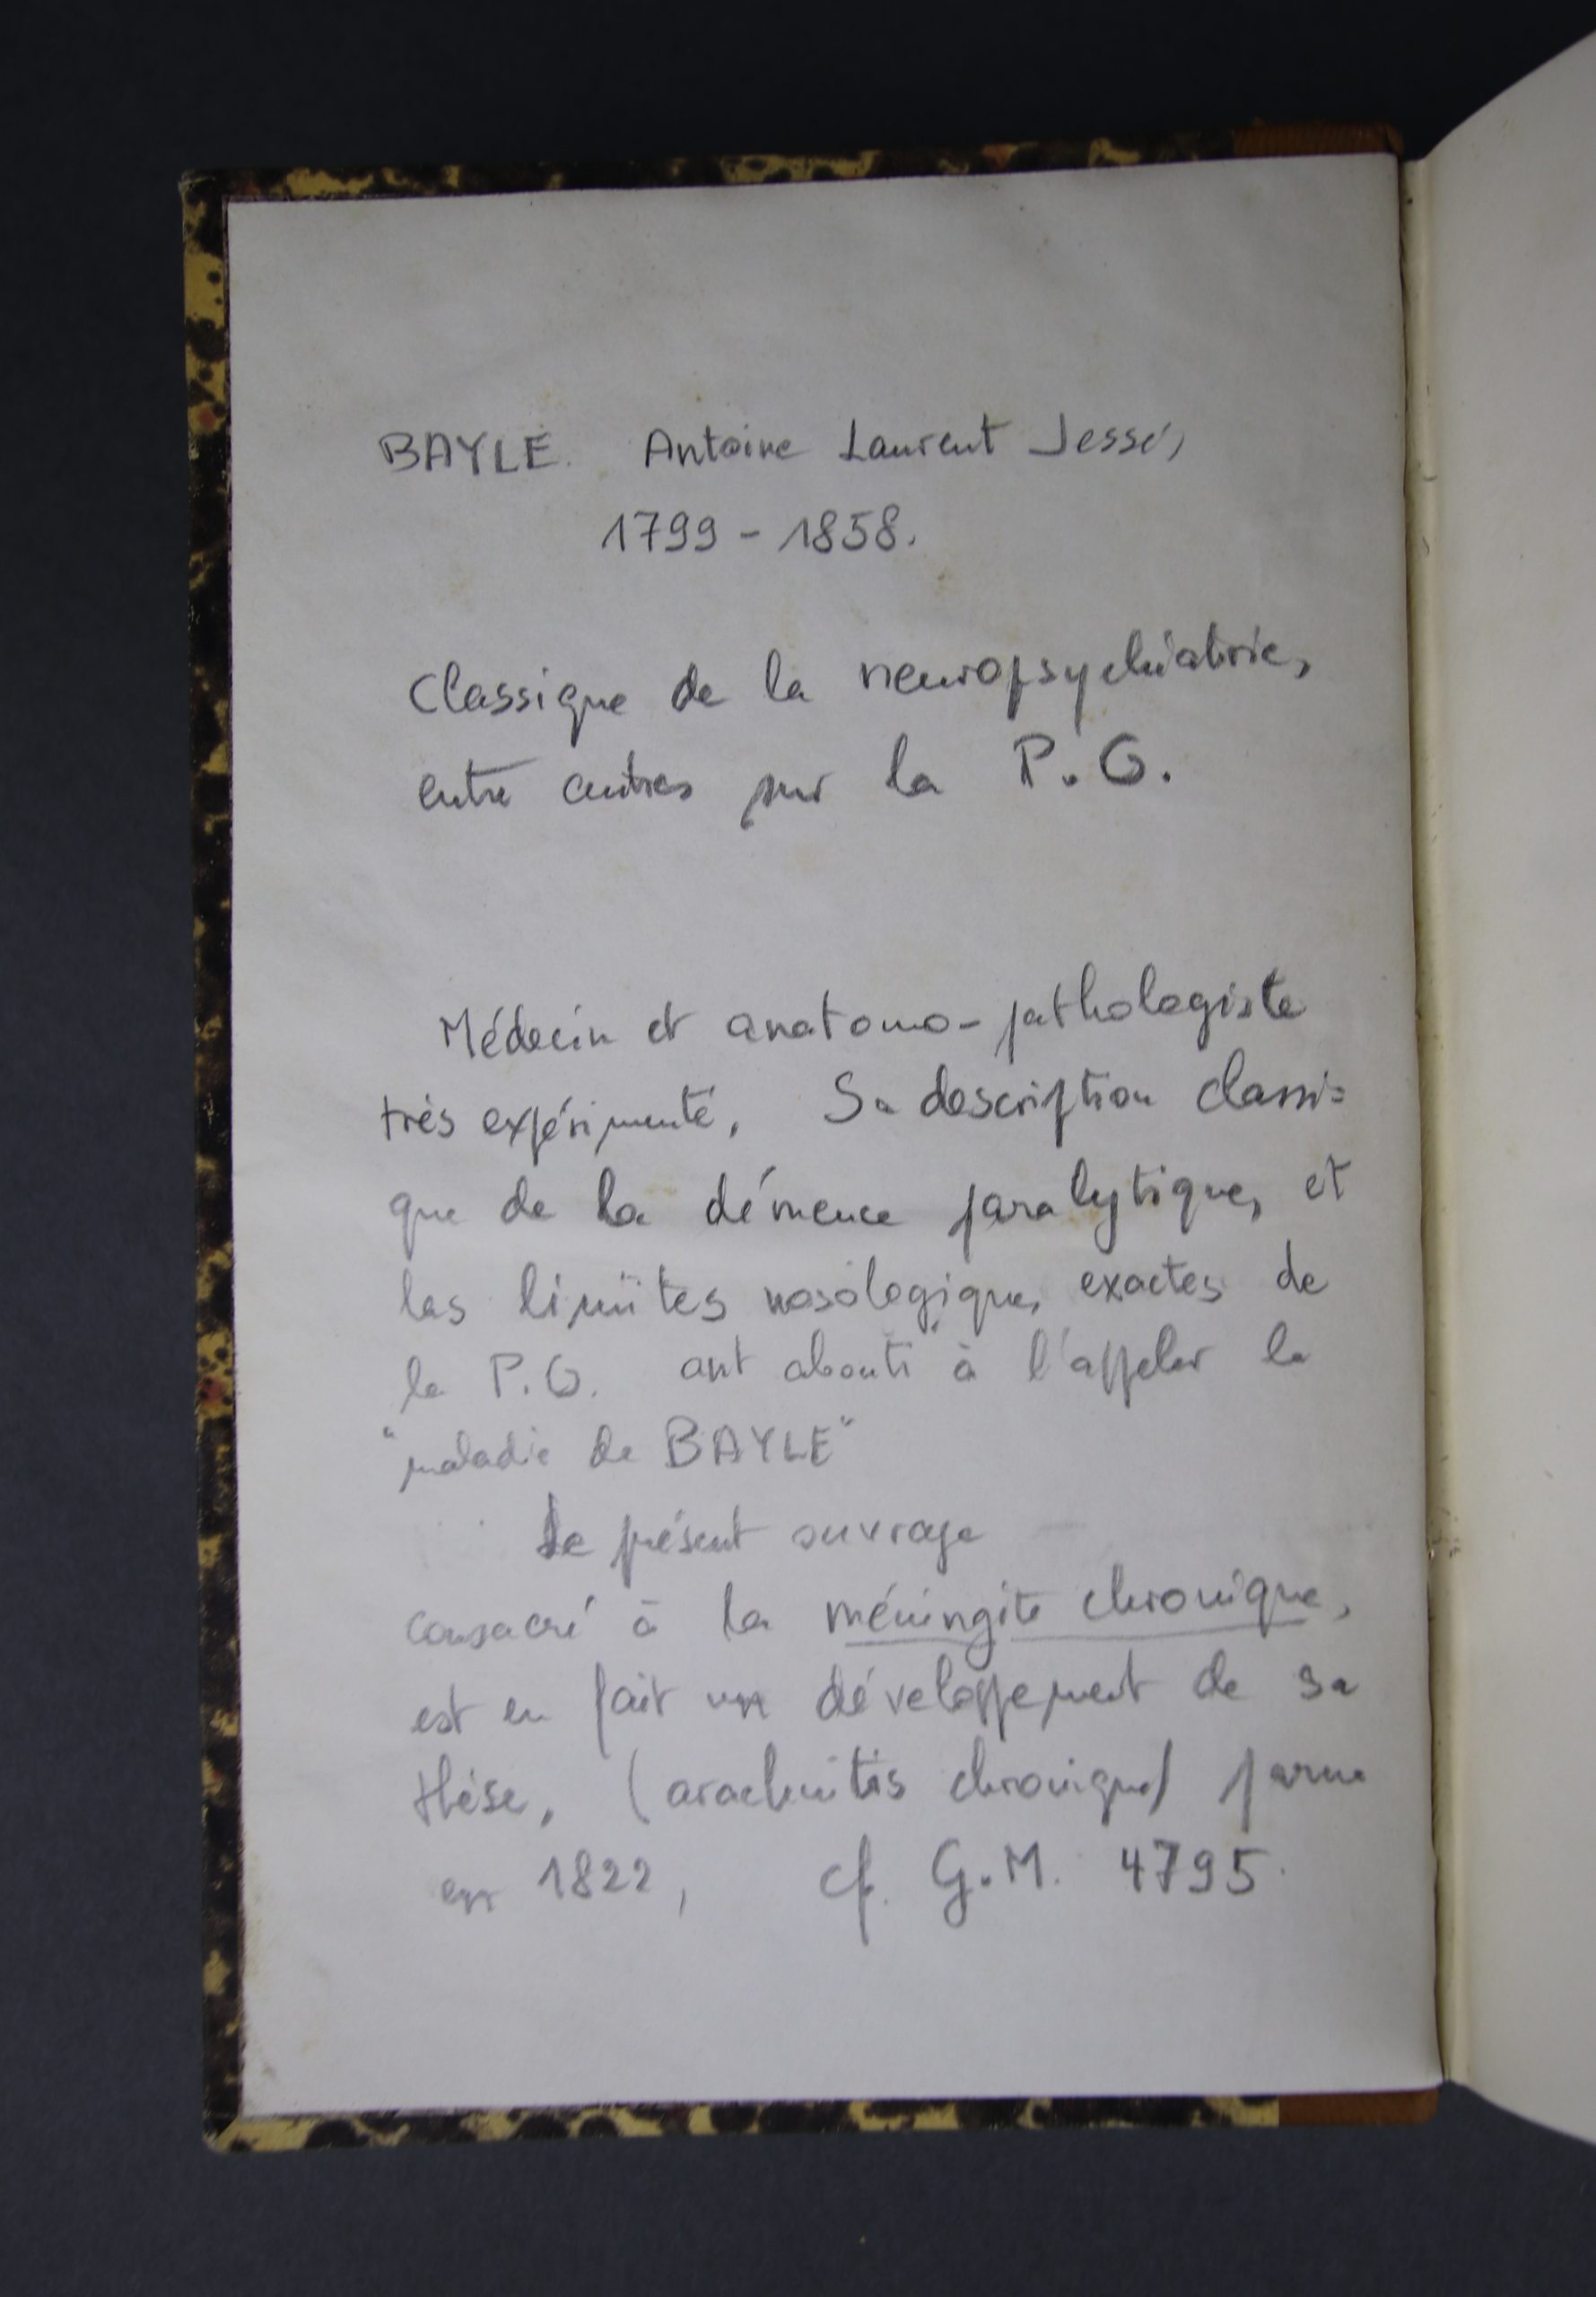 BAYLE. Antoine Laurent Jessé,
1799 - 1858.
Classique de la neuropsychiatrie,
entre autres sur la P. G.
Médecin et anatomo-pathologiste
très expérimenté. Sa description classi=
que de la démence paralytique, et
les limites nosologiques exactes de
la P. G. ont abouti à l'appeler la
"maladie de BAYLE"
Le présent ouvrage
consacré à la méningite chronique,
est en fait un développement de sa
thèse, (arachnitis chronique) parue
en 1822, cf. G.M. 4795.